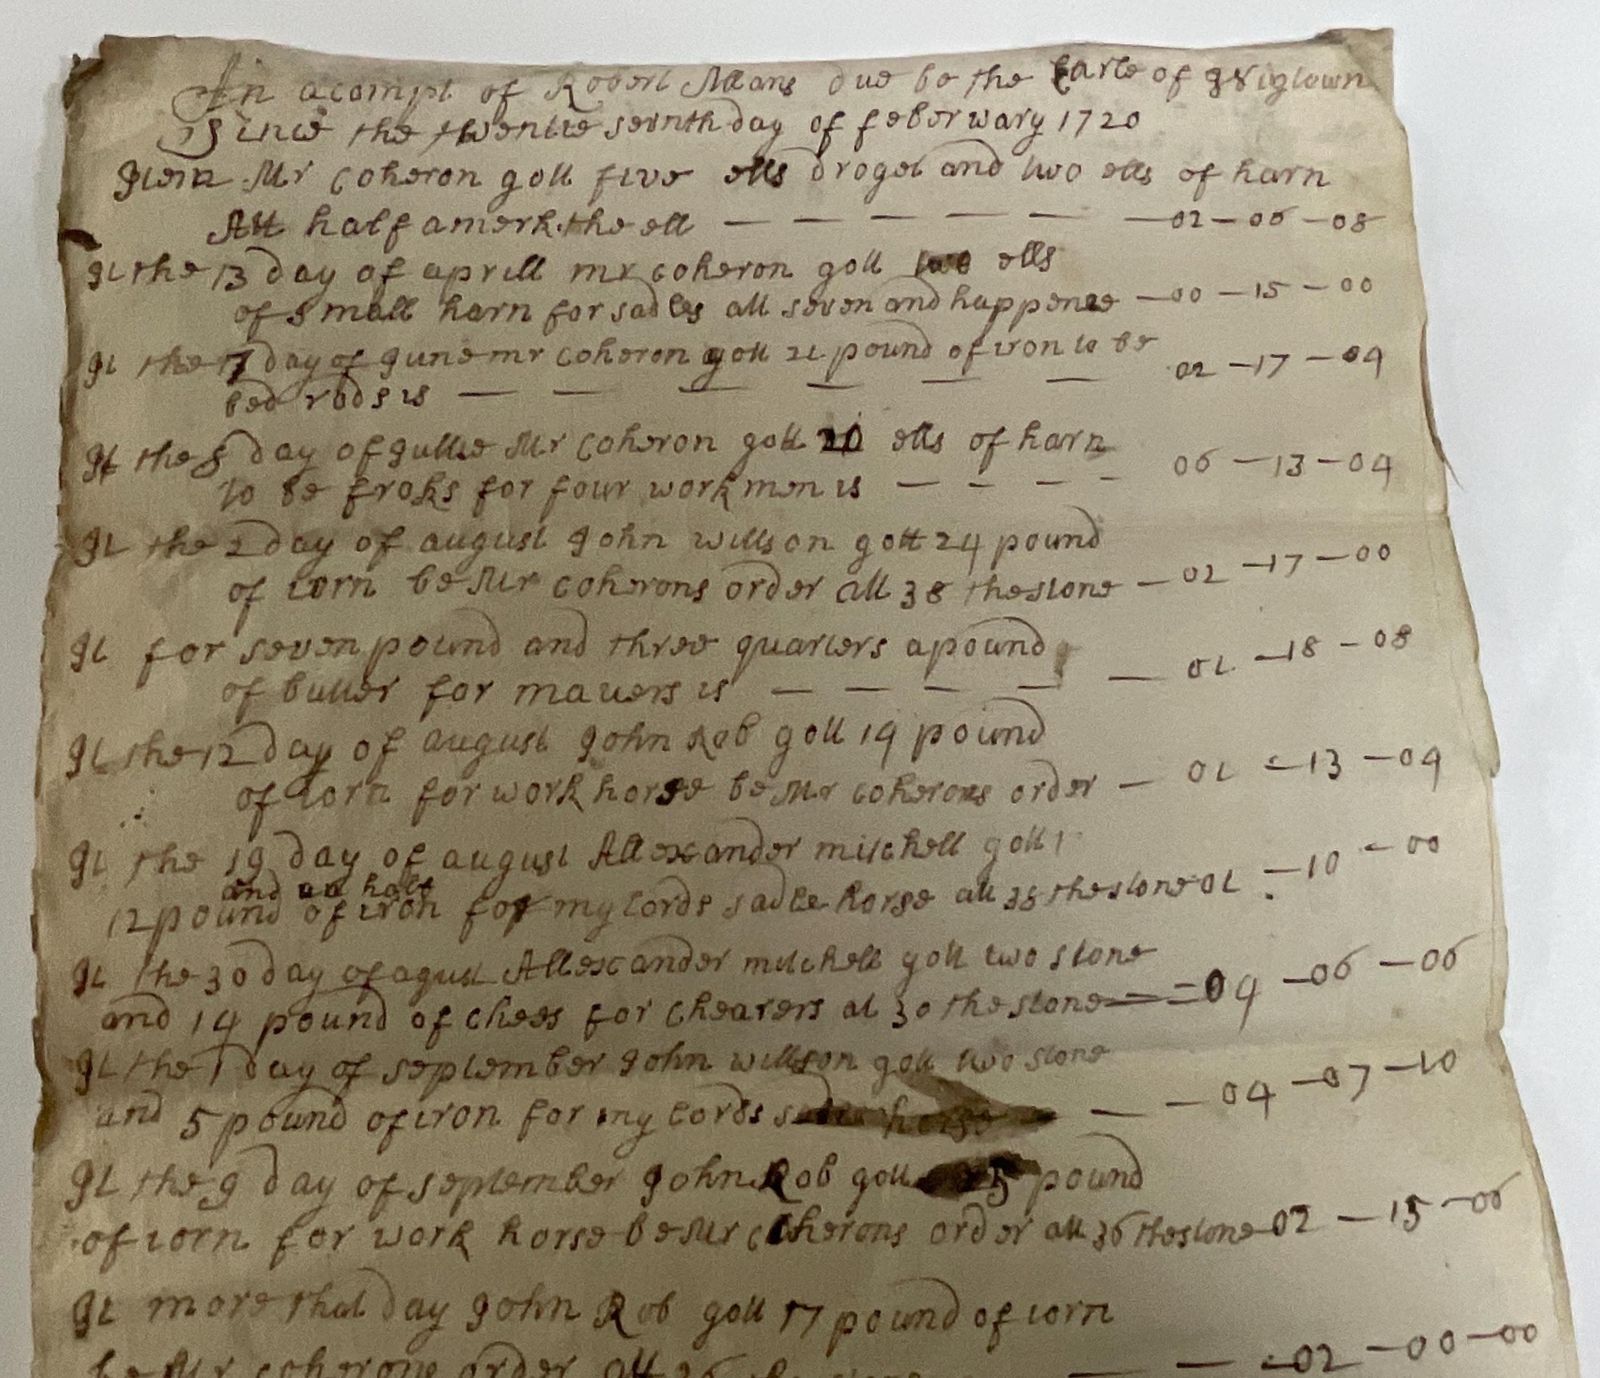 An acompt of Robert Allans due be the Earle of Wigtown
Since the twentie sevnth day of feberwary 1720
Item Mr Coheron gott five ells drogel and two ells of harn
Att half a merk the ell — — — — — — 02 — 06 — 08
It the 13 day of aprill mr coheron gott two ells
of small harn for sadles att seven and happence — 00 — 15 — 00
It the 7 day of June mr coheron gott 21 pound of iron to be
bed rods is — — — — — — 02 — 17 — 04
It the 8 day of Jullie Mr Coheron gott 20 ells of harn
to be froks for four work men is — — — — 06 — 13 — 04
It the 2 day of august John willson gott 24 pound
of iorn be Mr coherons order att 38 the stone — 02 — 17 — 00
It for seven pound and three quarters a pound
of butter for mauers is — — — — — 01 — 18 — 08
It the 12 day of august John Rob gott 14 pound
of iorn for work horse be Mr coherons order — 01 — 13 — 04
It the 19 day of august Allexander mitchell gott
and an half
12 pound of iron for my lords sadle horse att 38 the stone 01 — 10 — 00
It the 30 day of agust Allexander mitchell gott two stone
and 14 pound of chees for chearers at 30 the stone — 04 — 06 — 06
It the 1 day of september John willson gott two stone
and 5 pound of iron for my lords sadle horse — — 04 — 07 — 10
It the 9 day of september John Rob gott 25 pound
of iorn for work horse be Mr coherons order att 36 the stone 02 — 15 — 06
It more that day John Rob gott 17 pound of iorn
be Mr coherons order att 36 the stone — — 02 — 00 — 00